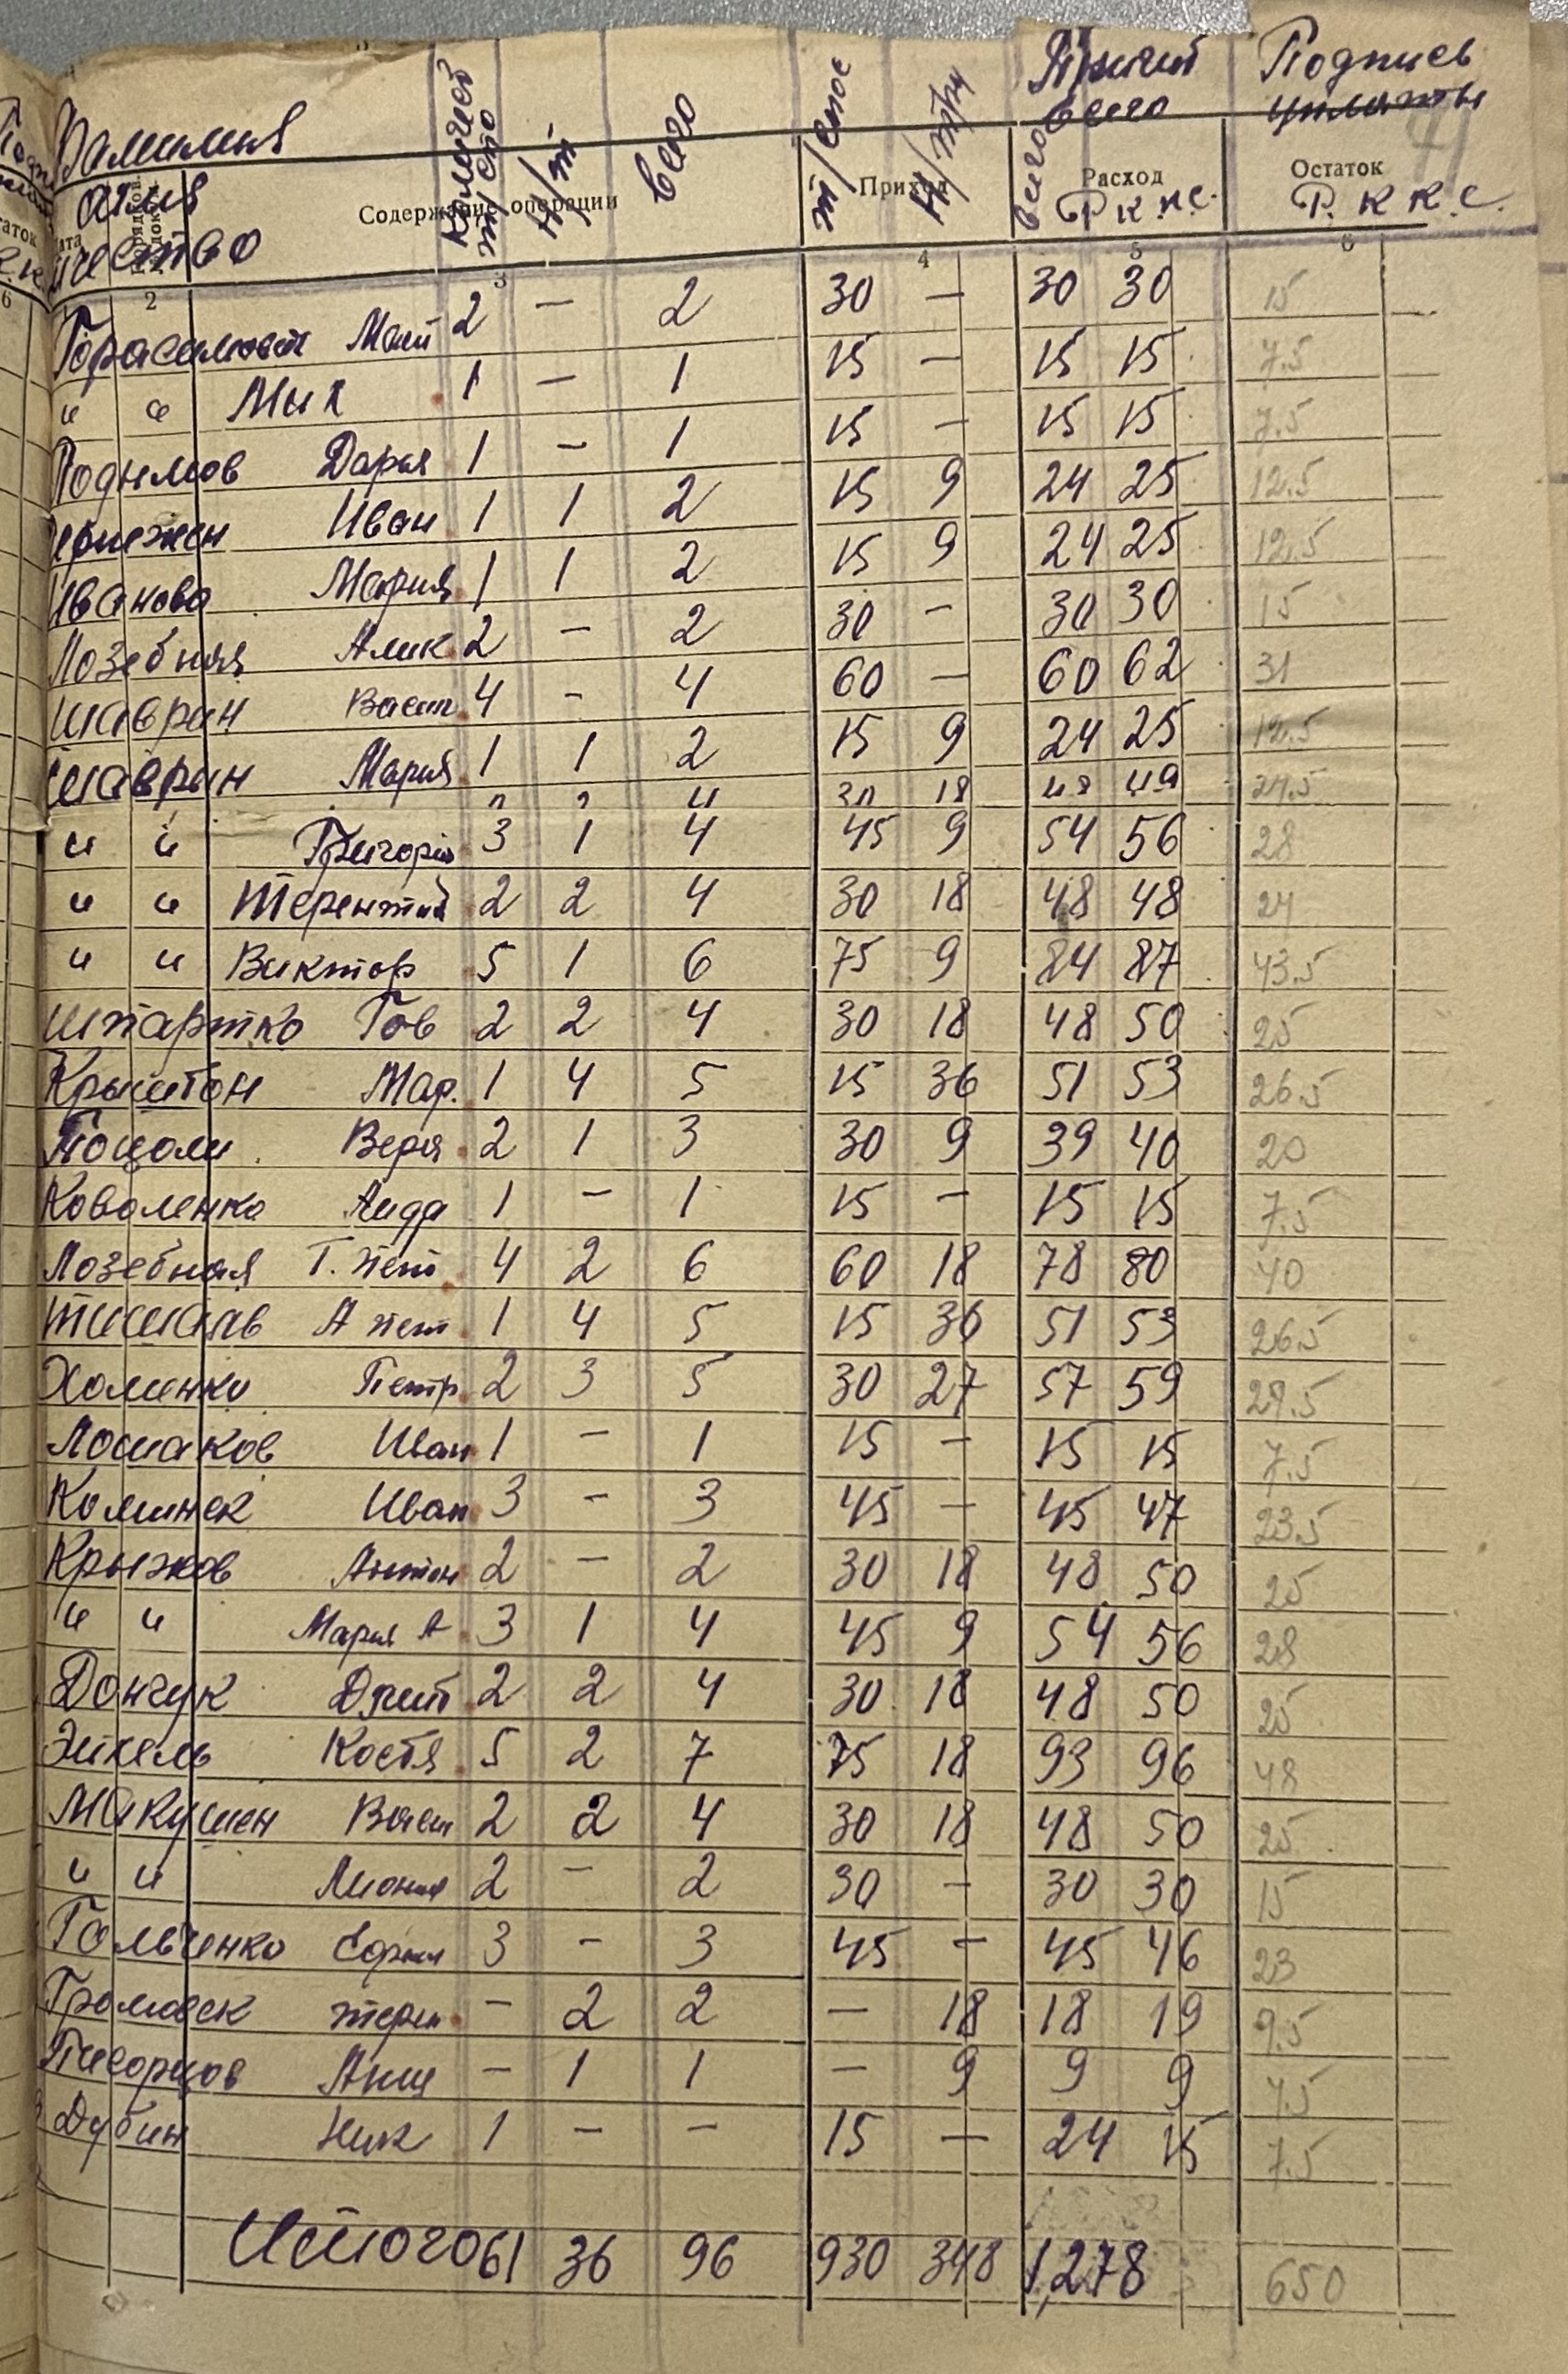 Фамилия Количест т/спо н/т Всего т/спос н/т/р всего Причит всего Подпись
Содержание операции Приход Расход Остаток
Р К К С. Р. К К. С.
2 3 4 5 6
Гарасимович 2 — 2 30 — 30 30 15
" " Мих 1 — 1 15 — 15 15 7.5
Подымов Дарья 1 — 1 15 — 15 15 7.5
Иван 1 1 2 15 9 24 25 12.5
Иванова Мария 1 1 2 15 9 24 25 12.5
Лозебная Алик 2 — 2 30 — 30 30 15
Шаврин Васил 4 — 4 60 — 60 62 31
Шаврин Мария 1 1 2 15 9 24 25 12.5
4 30 18 48 49 24.5
" " Григорий 3 1 4 45 9 54 56 28
" " Терентий 2 2 4 30 18 48 48 24
" " Виктор 5 1 6 75 9 84 87 43.5
Шпартко 2 2 4 30 18 48 50 25
Крыштон Мар. 1 4 5 15 36 51 53 26.5
Поцоли Вера 2 1 3 30 9 39 40 20
Коваленко Лида 1 — 1 15 — 15 15 7.5
Лозебная Г. пет 4 2 6 60 18 78 80 40
А пет 1 4 5 15 36 51 53 26.5
Хоменко Петр 2 3 5 30 27 57 59 29.5
Ломаков Иван 1 — 1 15 — 15 15 7.5
Коминек Иван 3 — 3 45 — 45 47 23.5
Крыжов Антон 2 — 2 30 18 48 50 25
" " Мария А 3 1 4 45 9 54 56 28
Дончук Дмит 2 2 4 30 18 48 50 25
Эйкель Костя 5 2 7 75 18 93 96 48
Макушен Васил 2 2 4 30 18 48 50 25
" " 2 — 2 30 — 30 30 15
Гальченко 3 — 3 45 — 45 46 23
Громовек — 2 2 — 18 18 19 9.5
Писорцов — 1 1 — 9 9 9
Дубин Ник 1 — — 15 — 24 15 7.5
Итого 61 36 96 930 348 1,278 650